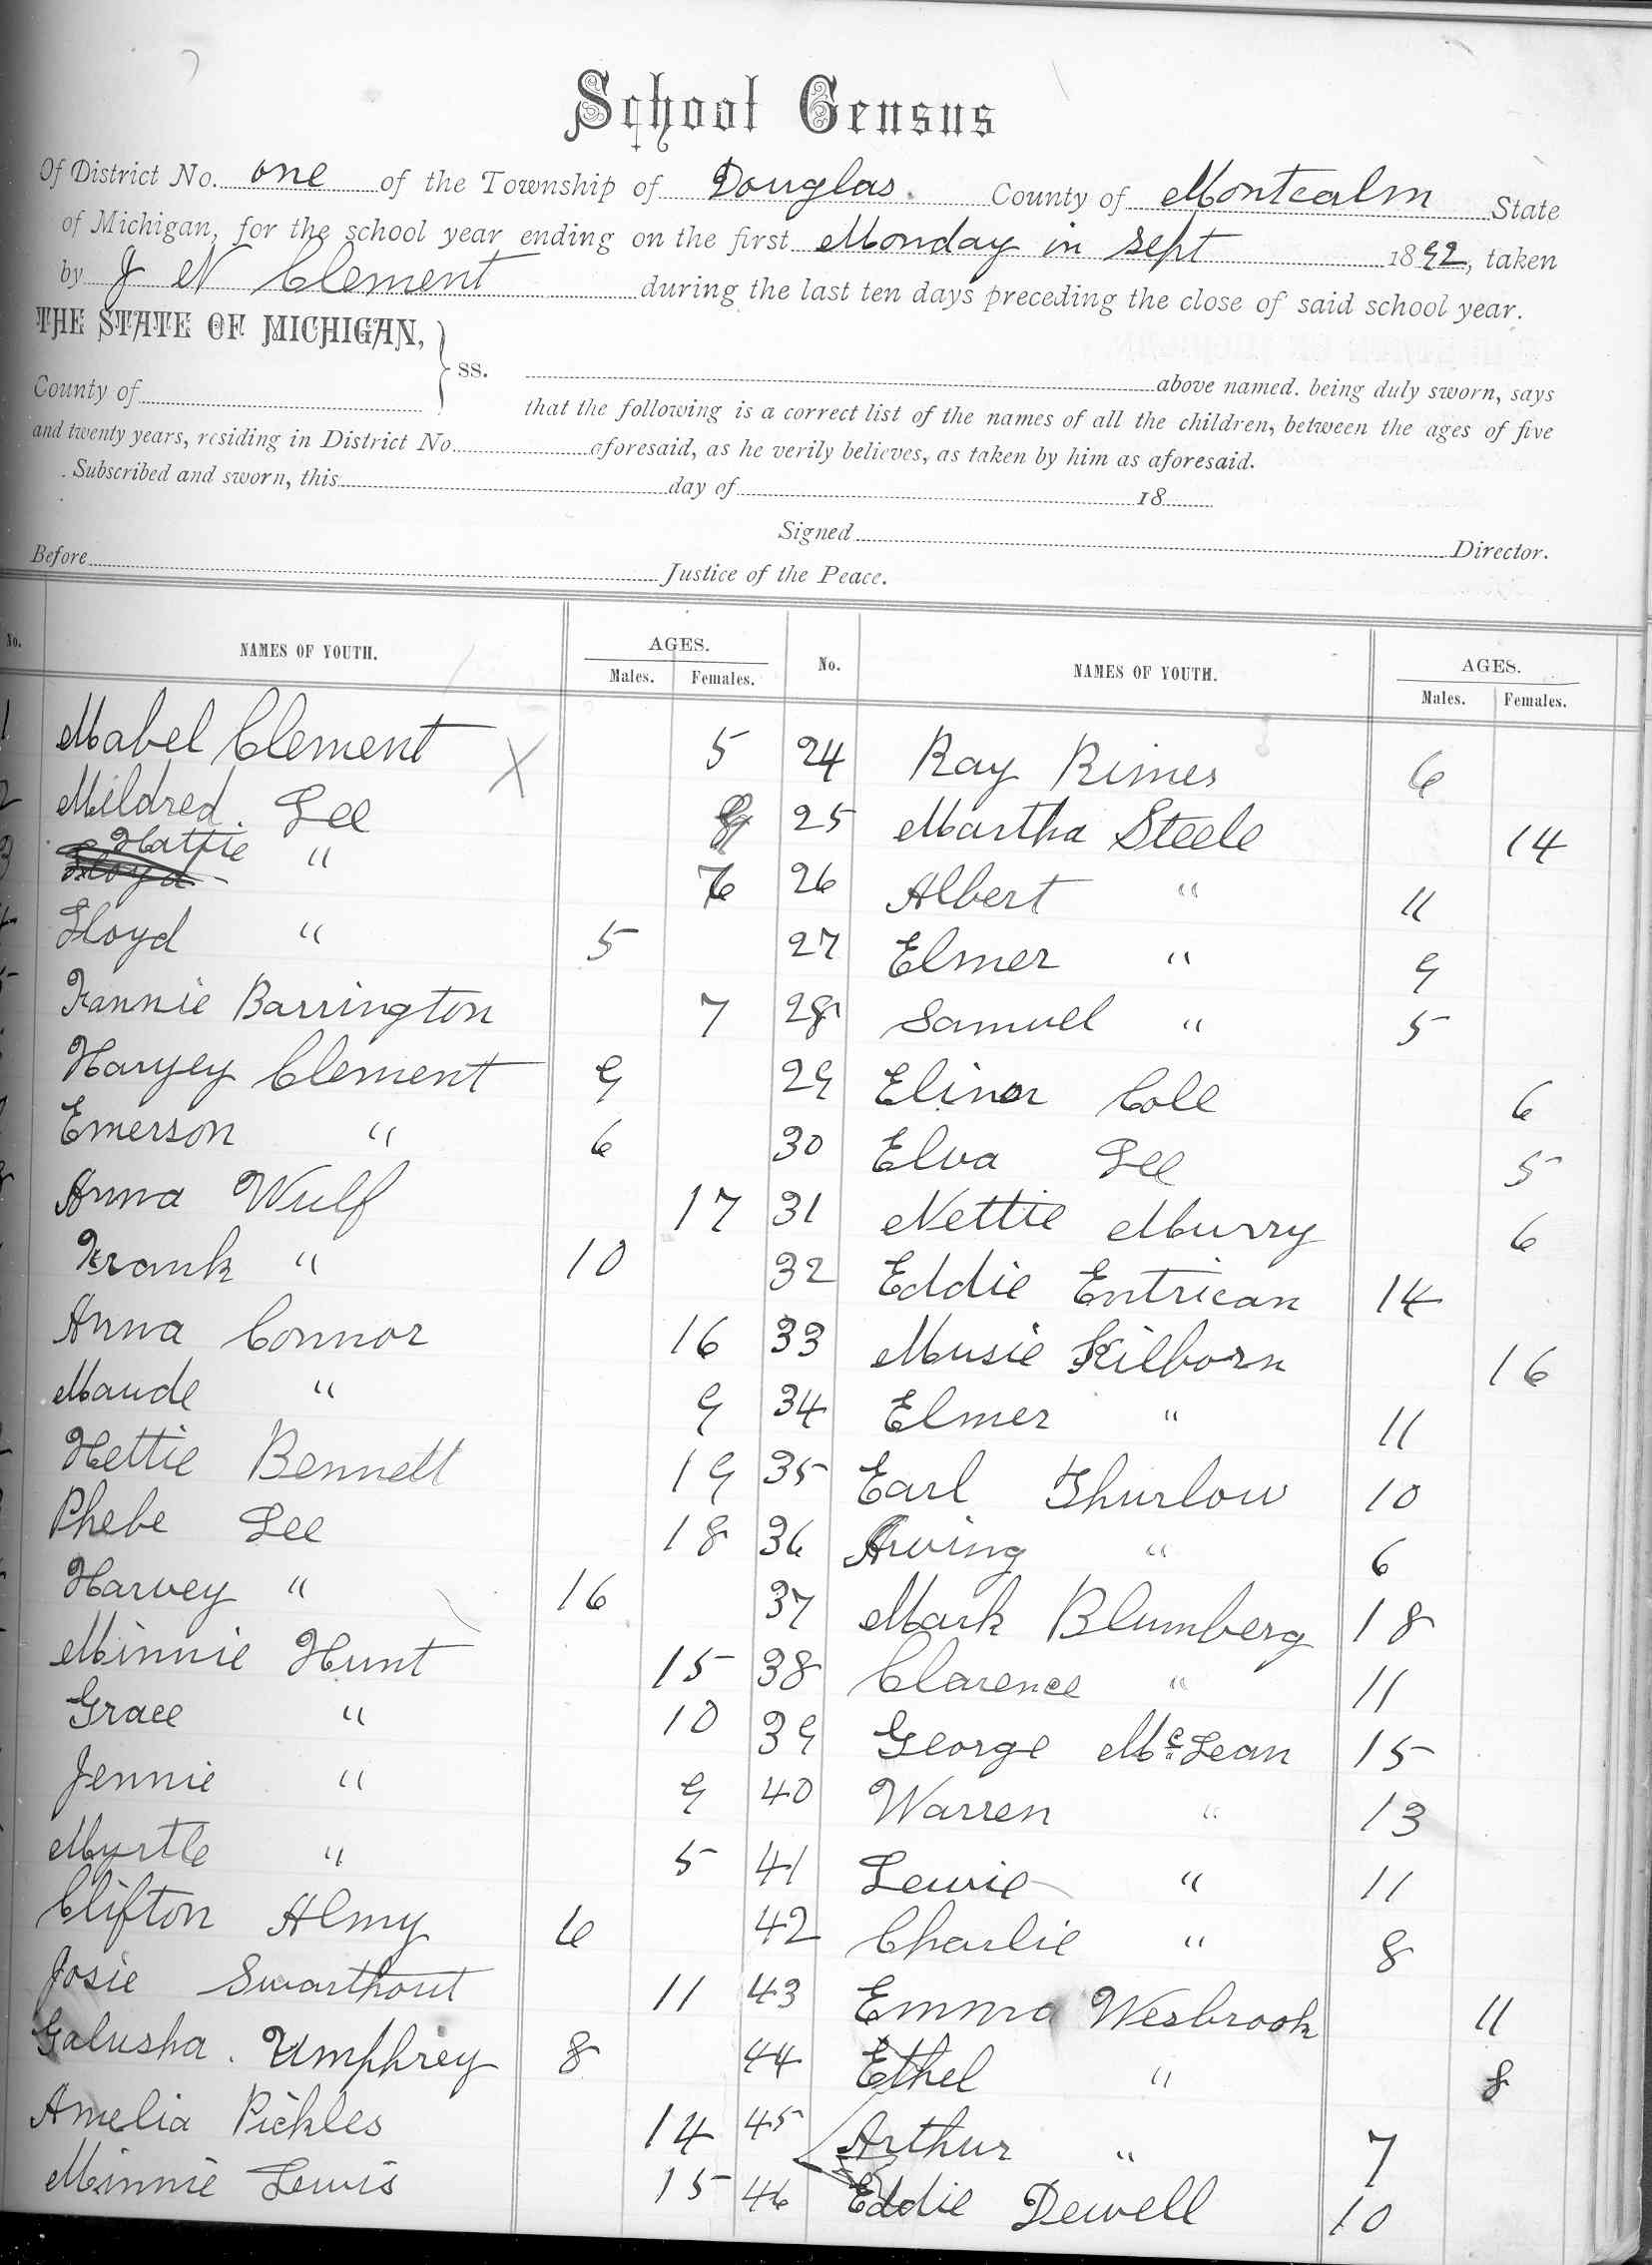 School Census
Of District No. one of the Township of Douglas. County of Montcalm State
of Michigan, for the school year ending on the first Monday in Sept 1892, taken
by J N Clement during the last ten days preceding the close of said school year.
THE STATE OF MICHIGAN,
ss.
County of
above named. being duly sworn, says
that the following is a correct list of the names of all the children, between the ages of five
and twenty years, residing in District No. aforesaid, as he verily believes, as taken by him as aforesaid.
Subscribed and sworn, this day of 18
Signed Director.
Before Justice of the Peace.
No. NAMES OF YOUTH. AGES. Males. Females.
1 Mabel Clement X 5
2 Mildred. Lee
3 Hattie " 6
Lloyd
4 Lloyd " 5
5 Fannie Barrington 7
Harvey Clement 9
Emerson " 6
8 Anna Wulf 17
Frank " 10
Anna Connor 16
Maude " 9
Hettie Bennett 19
Phebe Lee 18
Harvey " 16
Minnie Hunt 15
Grace " 10
Jennie " 9
Myrtle " 5
Clifton Almy 6
Josie Swarthout 11
Galusha. Umphrey 8
Amelia Pickles 14
Minnie Lewis 15
No. NAMES OF YOUTH. AGES. Males. Females.
24 Ray Rimes 6
25 Martha Steele 14
26 Albert " 11
27 Elmer " 9
28 Samuel " 5
29 Elinor Cole 6
30 Elva Lee 5
31 Nettie Murry 6
32 Eddie Entrican 14
33 Musie Kilborn 16
34 Elmer " 11
35 Earl Thurlow 10
36 Arving " 6
37 Mark Blumberg 18
38 Clarence " 11
39 George McLean 15
40 Warren " 13
41 Lewie " 11
42 Charlie " 8
43 Emma Wesbrook 11
44 Ethel " 8
45 Arthur " 7
46 Eddie Dewell 10